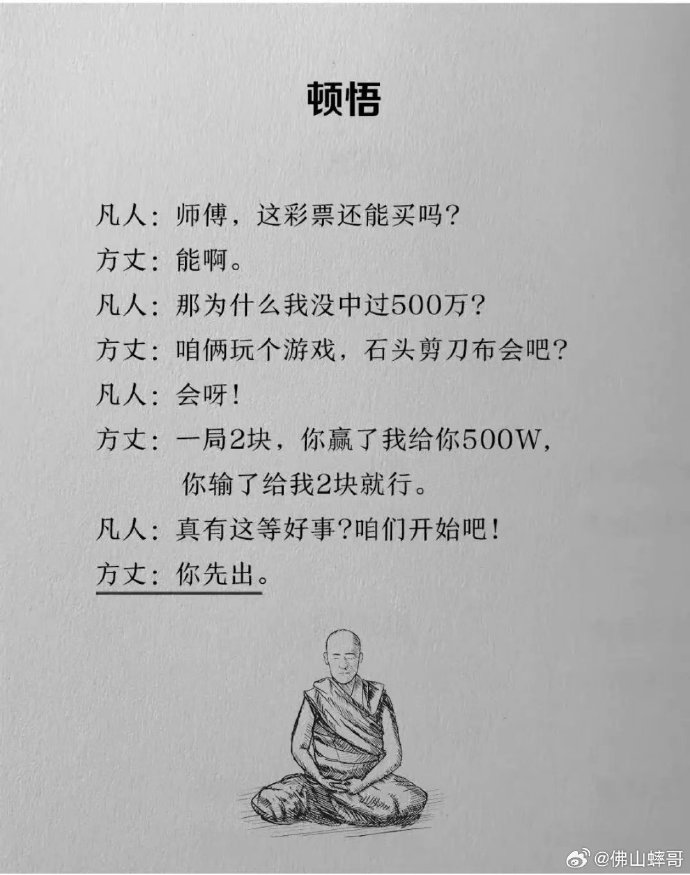 顿悟
凡人：师傅，这彩票还能买吗？
方丈：能啊。
凡人：那为什么我没中过500万？
方丈：咱俩玩个游戏，石头剪刀布会吧？
凡人：会呀！
方丈：一局2块，你赢了我给你500W，
你输了给我2块就行。
凡人：真有这等好事？咱们开始吧！
方丈：你先出。
@佛山蟀哥